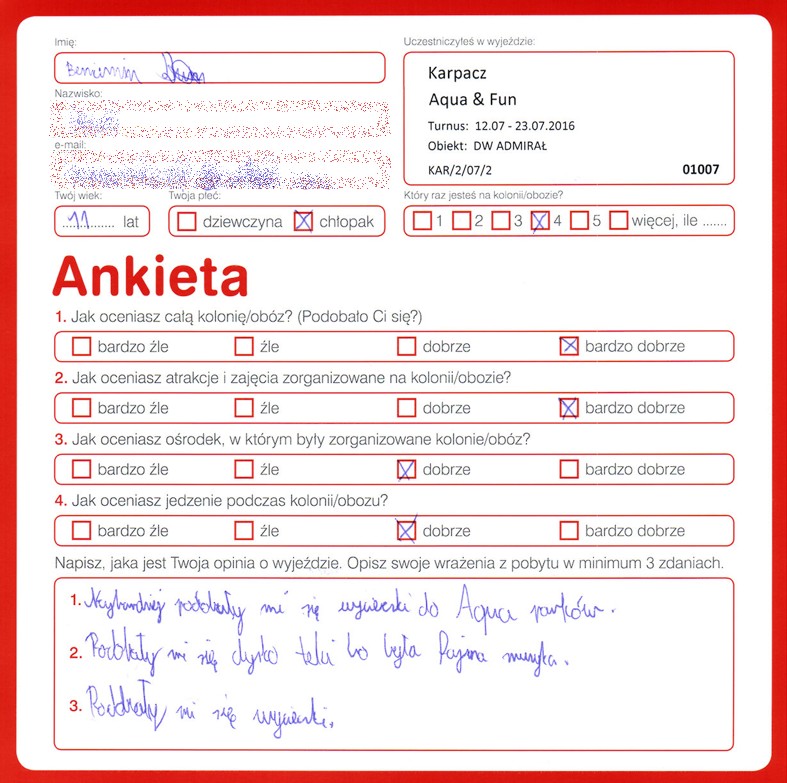 Imię:
Beniamin
Nazwisko:
e-mail:
Twój wiek:
11 lat
Twoja płeć:
dziewczyna chłopak
Uczestniczyłeś w wyjeździe:
Karpacz
Aqua & Fun
Turnus: 12.07 - 23.07.2016
Obiekt: DW ADMIRAŁ
KAR/2/07/2 01007
Który raz jesteś na kolonii/obozie?
1 2 3 4 5 więcej, ile .......
Ankieta
1. Jak oceniasz całą kolonię/obóz? (Podobało Ci się?)
bardzo źle źle dobrze bardzo dobrze
2. Jak oceniasz atrakcje i zajęcia zorganizowane na kolonii/obozie?
bardzo źle źle dobrze bardzo dobrze
3. Jak oceniasz ośrodek, w którym były zorganizowane kolonie/obóz?
bardzo źle źle dobrze bardzo dobrze
4. Jak oceniasz jedzenie podczas kolonii/obozu?
bardzo źle źle dobrze bardzo dobrze
Napisz, jaka jest Twoja opinia o wyjeździe. Opisz swoje wrażenia z pobytu w minimum 3 zdaniach.
1. Najbardziej podobały mi się wycieczki do Aqua parków.
2. Podobały mi się dysko teki bo była fajna muzyka.
3. Podobały mi się wycieczki.